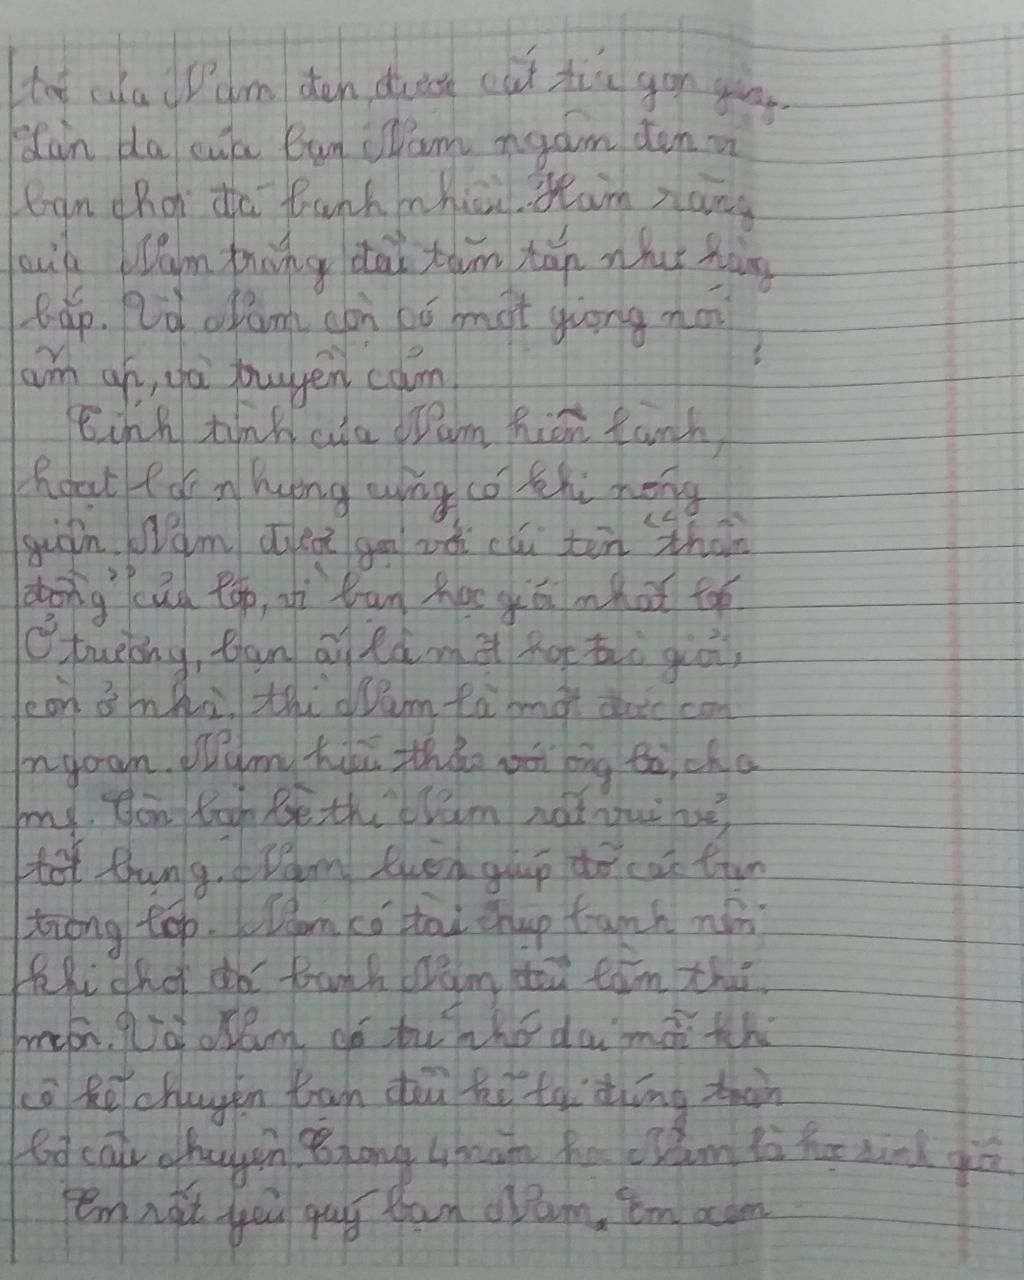 tóc của Nam đen, được cắt tỉa gọn gàng.
Làn da của bạn Nam ngăm đen vì
bạn chơi đá banh nhiều. Hàm răng
của Nam trắng đều tăm tắp như hàng
bắp. Và Nam còn có một giọng nói
ấm áp, và truyền cảm
Tính tình của Nam hiền lành,
hoạt bát nhưng cũng có khi nóng
giận. Nam được gọi với cái tên "thần
đồng" của lớp, vì bạn học giỏi nhất lớp
Ở trường, bạn ấy là một học trò giỏi,
còn ở nhà, thì Nam là một đứa con
ngoan. Nam hiếu thảo với ông bà, cha
mẹ. Còn bạn bè thì Nam rất vui vẻ,
tốt bụng. Nam luôn giúp đỡ các bạn
trong lớp. Nam có tài chụp banh nên
khi chơi đá banh Nam đều làm thủ
môn. Và Nam có trí nhớ dai mỗi khi
cô kể chuyện bạn đều kể lại đúng toàn
bộ câu chuyện. Trong 4 năm học Nam là học sinh giỏi
Em rất yêu quý bạn Nam. Em xem